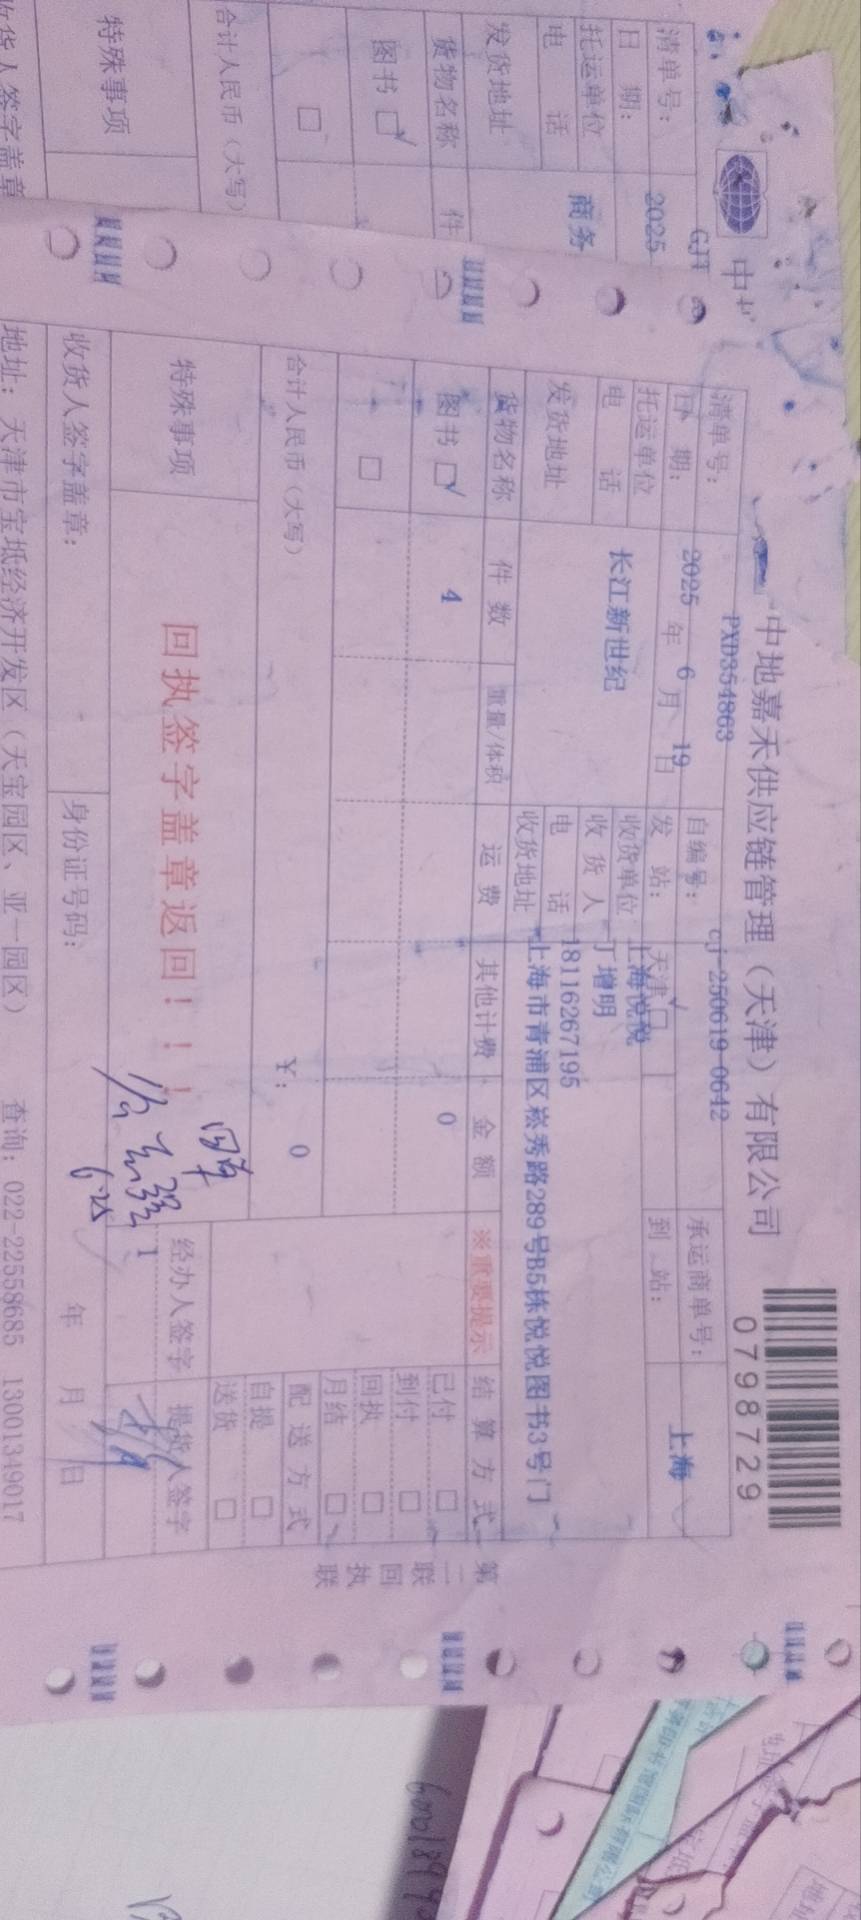 中地嘉禾供应链管理（天津）有限公司
0798729
清单号： PXD354863 自编号： cj-250619-0642 承运商单号：
日 期： 2025 年 6 月 19 日 发 站： 天津 到 站： 上海
托运单位 长江新世纪 收货单位 上海悦悦
收 货 人 丁增明
电 话 电 话 18116267195
发货地址 收货地址 上海市青浦区崧秀路289号B5栋悦悦图书3号门
货物名称 件 数 重量/体积 运 费 其他计费 金 额 ※重要提示 结 算 方 式
图书 ☑ 4 0 已付 □
到付 □
□ 回执 □
月结 □
合计人民币（大写） ￥： 0 配 送 方 式
自提 □
送货 □
特殊事项 回执签字盖章返回！！！ 经办人签字 提货人签字
1
收货人签字盖章： 身份证号码： 年 月 日
地址：天津市宝坻经济开发区（天宝园区、亚一园区） 查询：022-22558685 13001349017
第二联 回执联
清单号： GJT
日 期： 2025
托运单位 商务
电 话
发货地址
货物名称 件
图书 ☑
□
合计人民币（大写）
特殊事项
收货人签字盖章